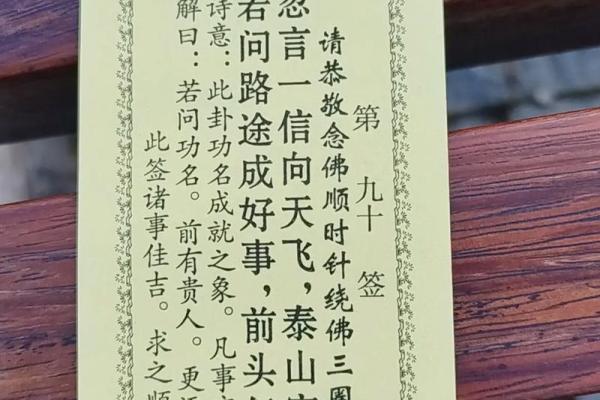 第九十签
请恭敬念佛顺时针绕佛三圈
忽言一信向天飞，泰山
若问路途成好事，前头
诗意：此卦功名成就之象。凡事
解曰：若问功名。前有贵人。更
此签诸事佳吉。求之顺